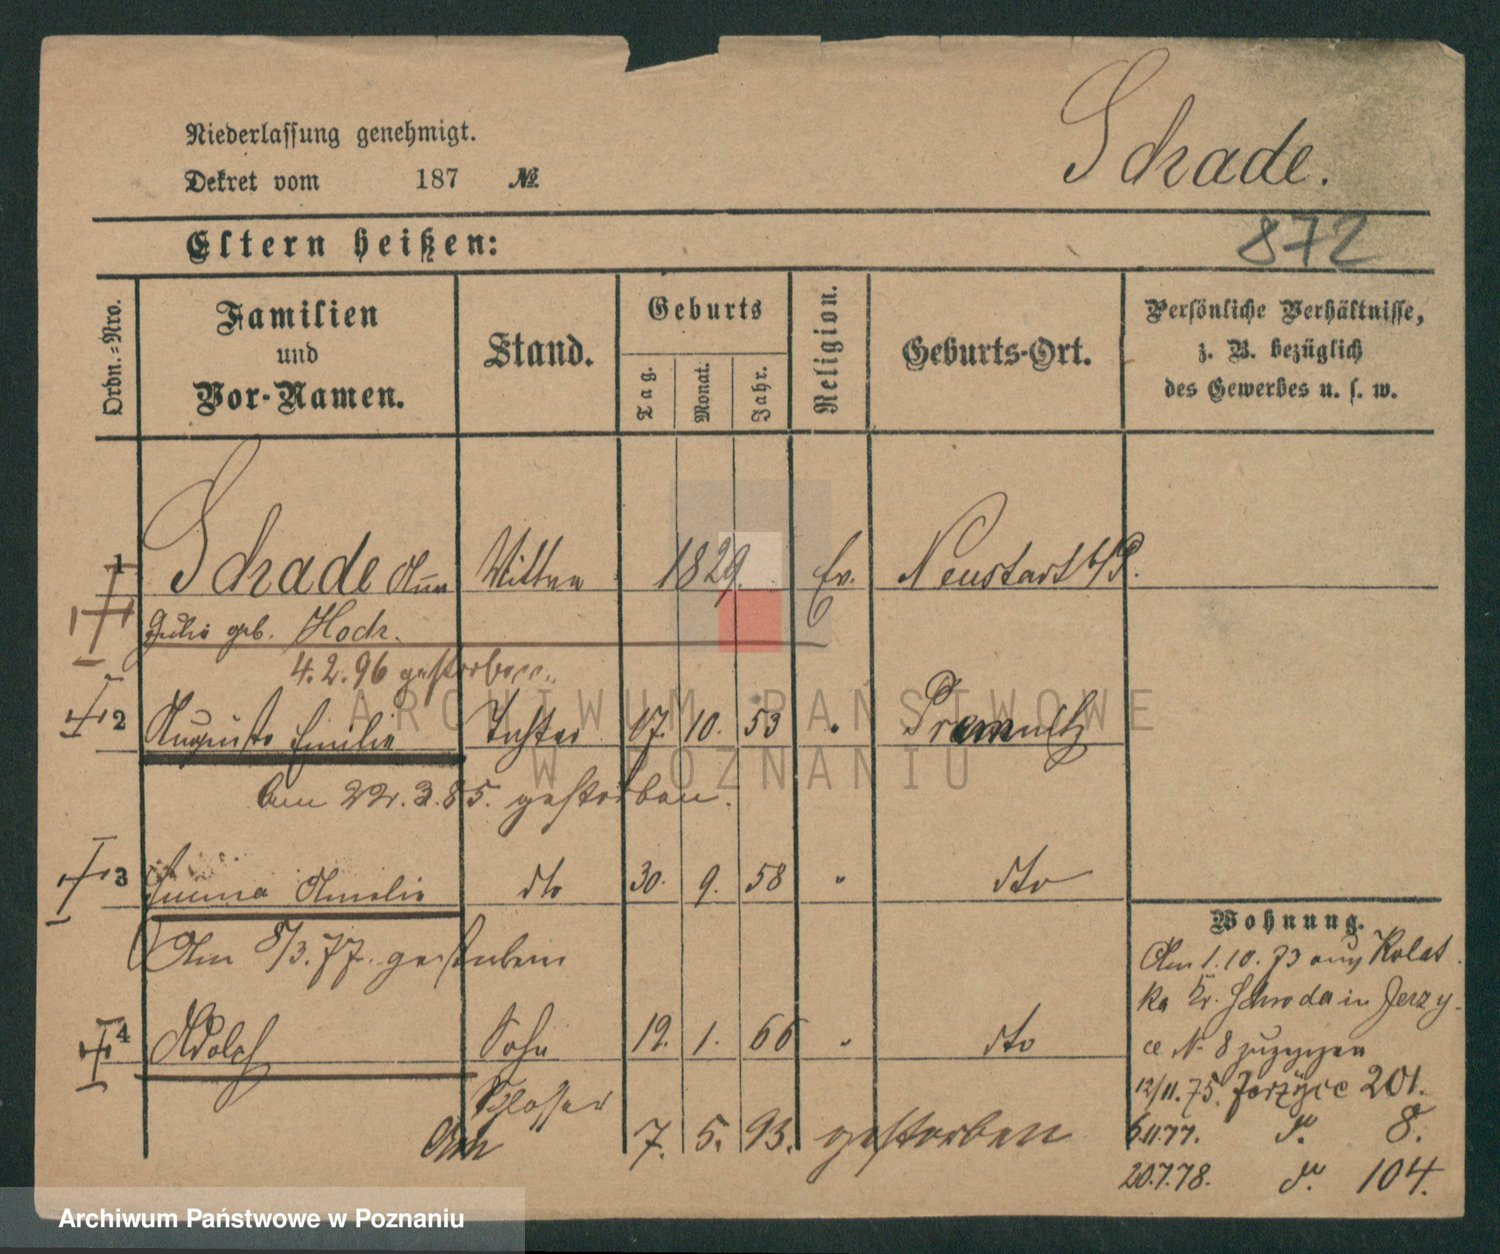 Niederlassung genehmigt.
Dekret vom 187 №
Schade.
872
Eltern heißen:
Ordn.-Nro.
Familien
und
Vor-Namen.
Stand.
Geburts
Tag.
Monat.
Jahr.
Religion.
Geburts-Ort.
Persönliche Verhältnisse,
z. B. bezüglich
des Gewerbes u. s. w.
1 Schade Wittwe 1829. Ev. Neustadt b/P.
Julie geb. Hock.
4.2.96 gestorben.
2 Auguste Emilie Tochter 17. 10. 53 " 
Am 22.3.85. gestorben.
3 Emma Amalie dto 30. 9. 58 " dto
Am 8/3.77. gestorben
4 Adolf Sohn 19. 1. 66 " dto
Schlosser
Am 7. 5. 93. gestorben
Wohnung.
Am 1.10.73 aus Kolat
ka Kr. Schroda in Jerzy-
ce N. 8 zugezogen
12/11.75. Jerzyce 201.
6.11.77. do. 8.
20.7.78. do. 104.
ARCHIWUM PAŃSTWOWE
W POZNANIU
Archiwum Państwowe w Poznaniu